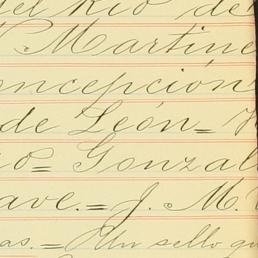 del Rio de
Martine
oncepción
de León= 
o= Gonzal
ave.= J. M.
as.= Un sello qu